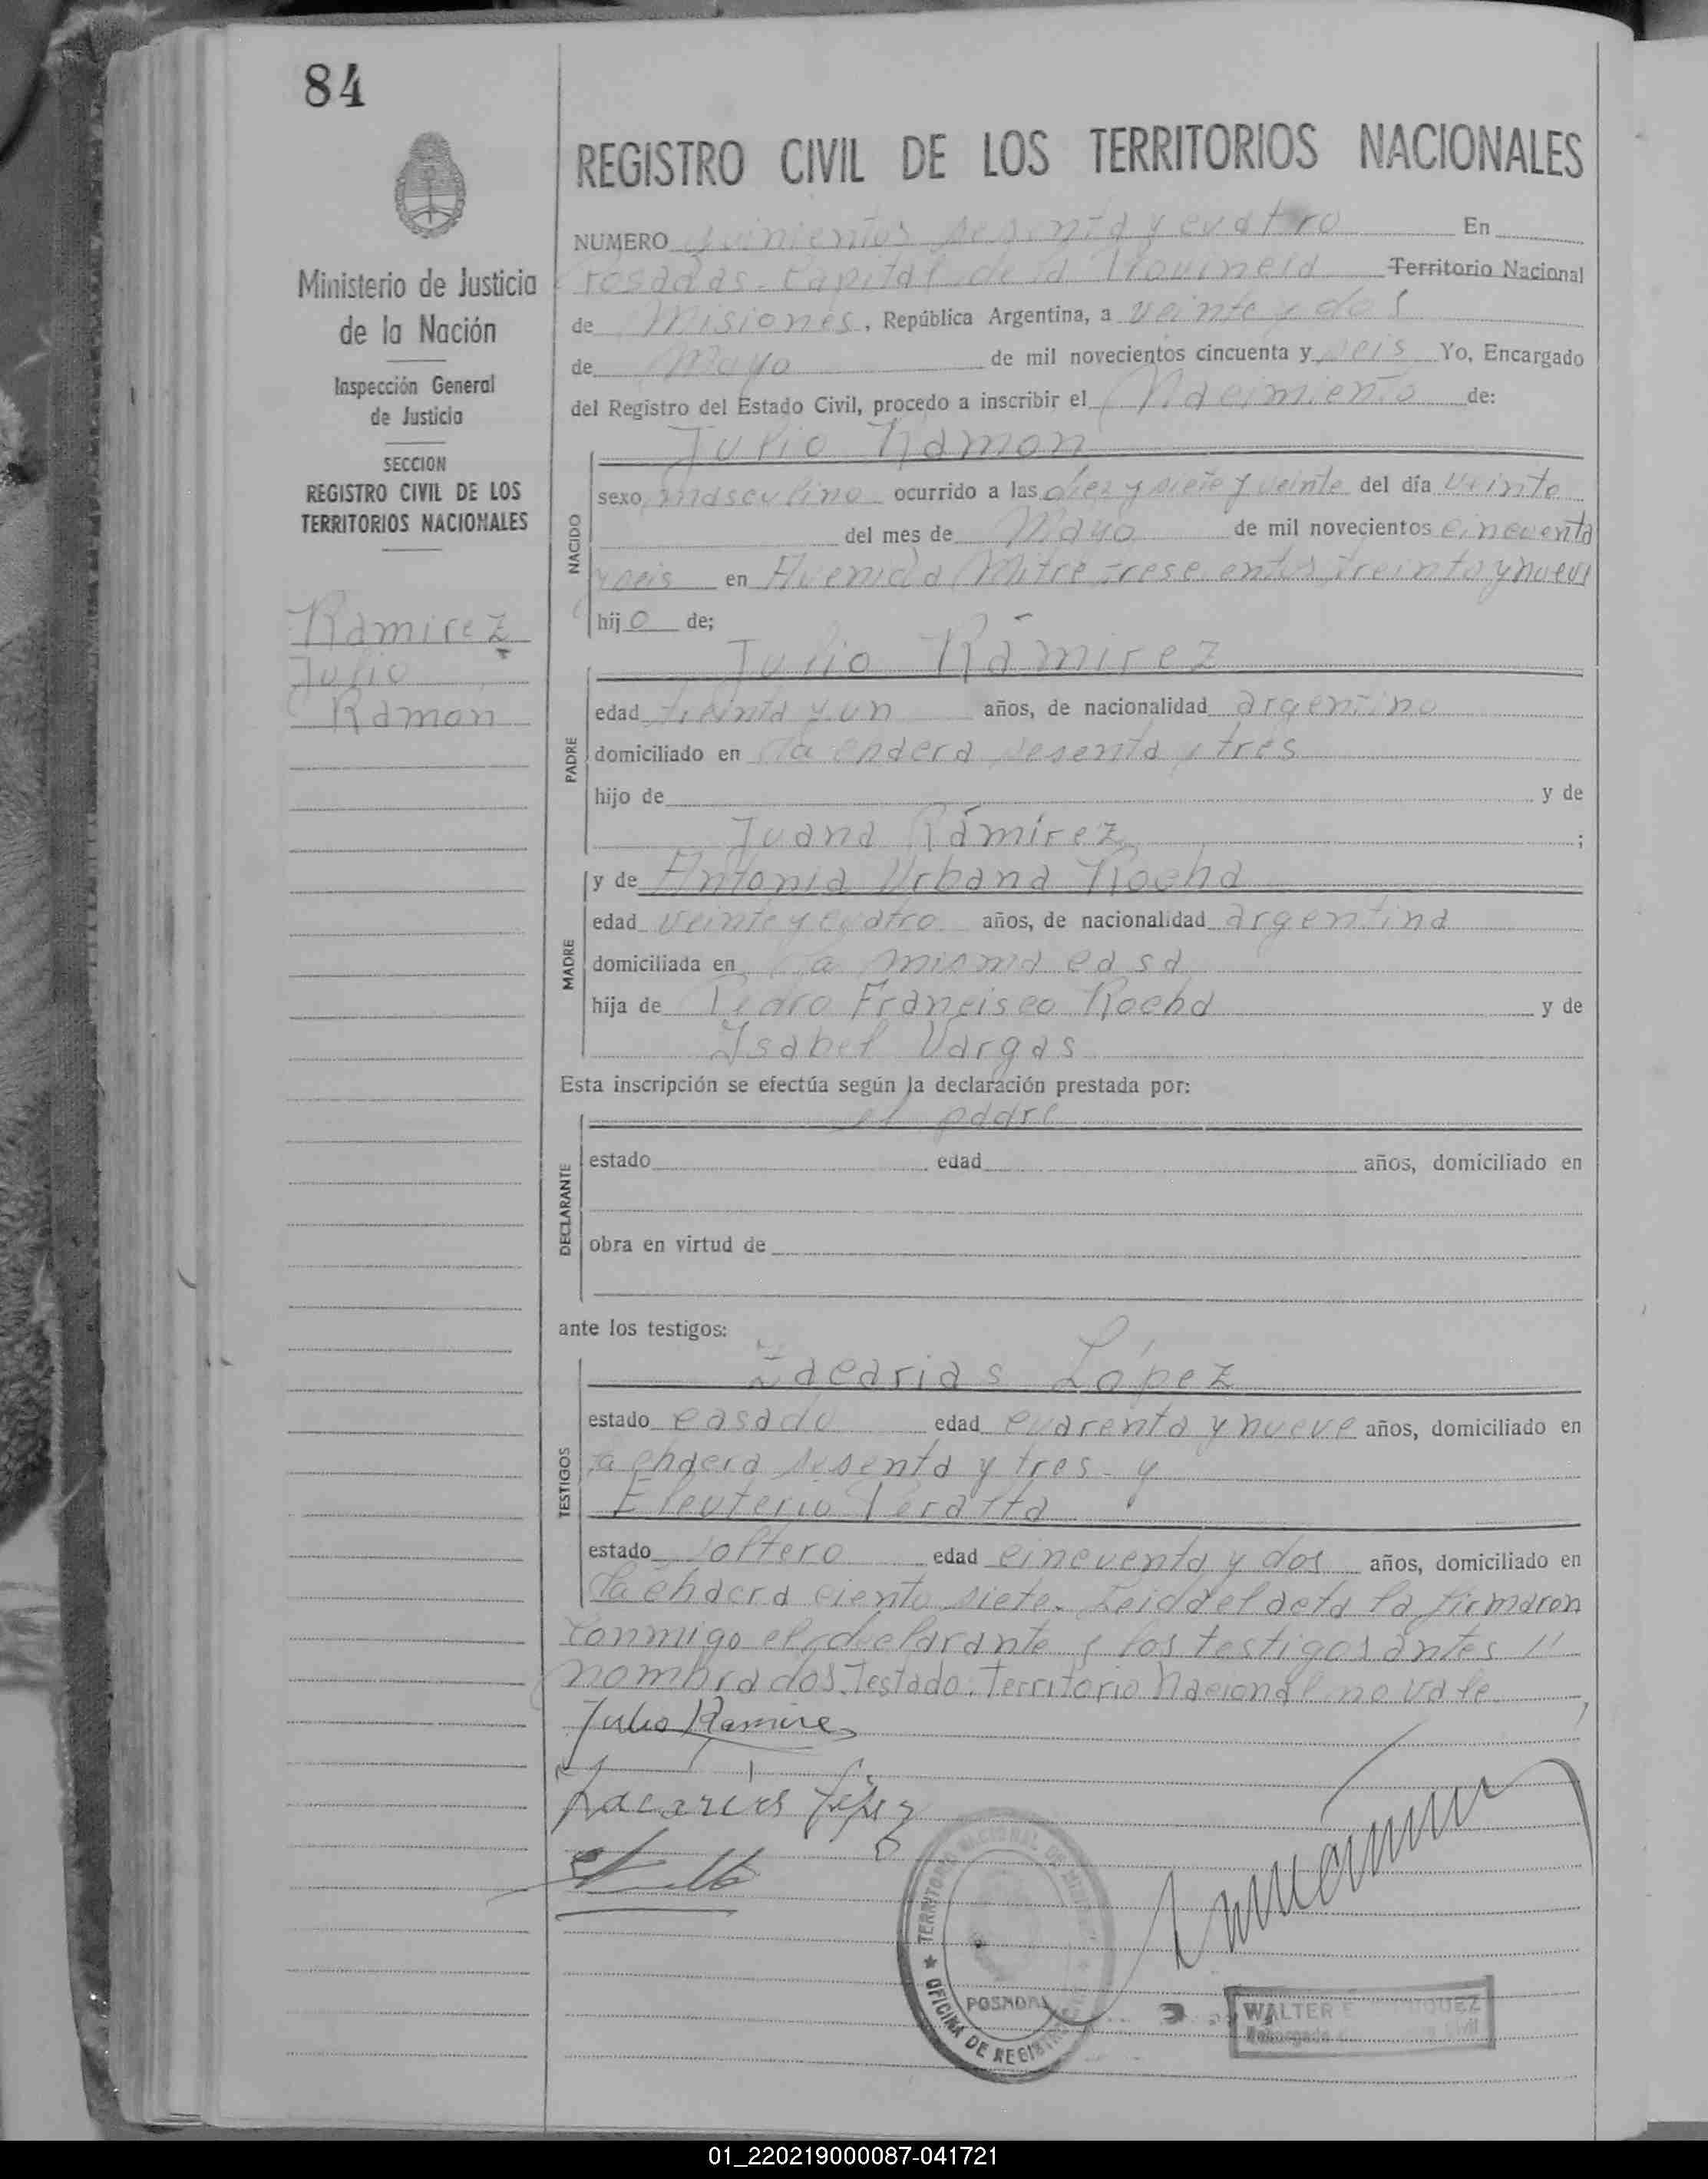 84
REGISTRO CIVIL DE LOS TERRITORIOS NACIONALES
Ministerio de Justicia
de la Nación
Inspección General
de Justicia
SECCION
REGISTRO CIVIL DE LOS
TERRITORIOS NACIONALES
Ramirez
Julio
Ramon
NUMERO quinientos sesenta y cuatro En
Posadas. Capital de la Provincia Territorio Nacional
de Misiones, República Argentina, a veinte y dos
de Mayo de mil novecientos cincuenta y seis Yo, Encargado
del Registro del Estado Civil, procedo a inscribir el Nacimiento de:
Julio Ramon
NACIDO
sexo masculino ocurrido a las diez y siete y veinte del día veinte
del mes de Mayo de mil novecientos cincuenta
y seis en Avenida Mitre trescientos treinta y nueve
hijo de;
Julio Ramirez
PADRE
edad treinta y un años, de nacionalidad argentino
domiciliado en la chacra sesenta y tres
hijo de y de
Juana Ramirez ;
y de Antonia Urbana Rocha
MADRE
edad veinte y cuatro años, de nacionalidad argentina
domiciliada en la misma casa
hija de Pedro Francisco Rocha y de
Isabel Vargas
Esta inscripción se efectúa según la declaración prestada por:
el padre
DECLARANTE
estado edad años, domiciliado en
obra en virtud de
ante los testigos:
Zacarias López
TESTIGOS
estado casado edad cuarenta y nueve años, domiciliado en
la chacra sesenta y tres y
Eleuterio Peralta
estado soltero edad cincuenta y dos años, domiciliado en
la chacra ciento siete. Leida el acta la firmaron
conmigo el declarante y los testigos antes
nombrados. Testado. Territorio Nacional no vale.
Julio Ramires
Zacarias López
TERRITORIO NACIONAL DE MISIONES
OFICINA DE REGISTRO
POSADAS
WALTER E
Encargado Civil
01_220219000087-041721